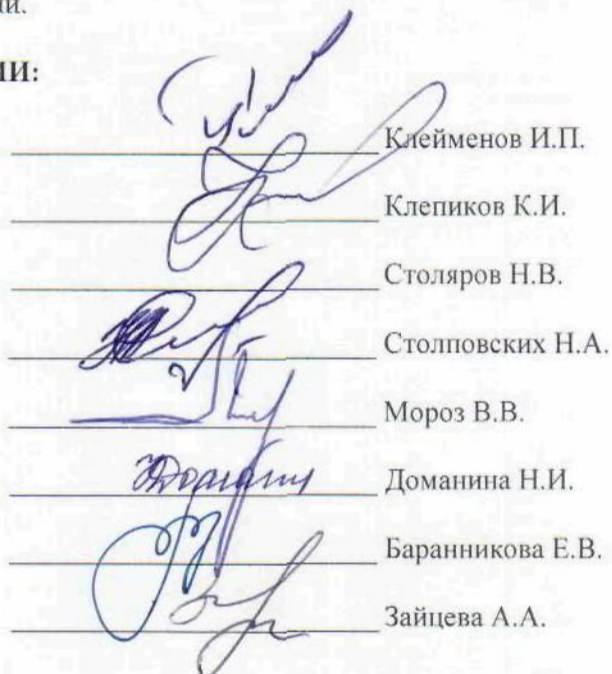 ии.
ИИ:
Клейменов И.П.
Клепиков К.И.
Столяров Н.В.
Столповских Н.А.
Мороз В.В.
Доманина Н.И.
Баранникова Е.В.
Зайцева А.А.